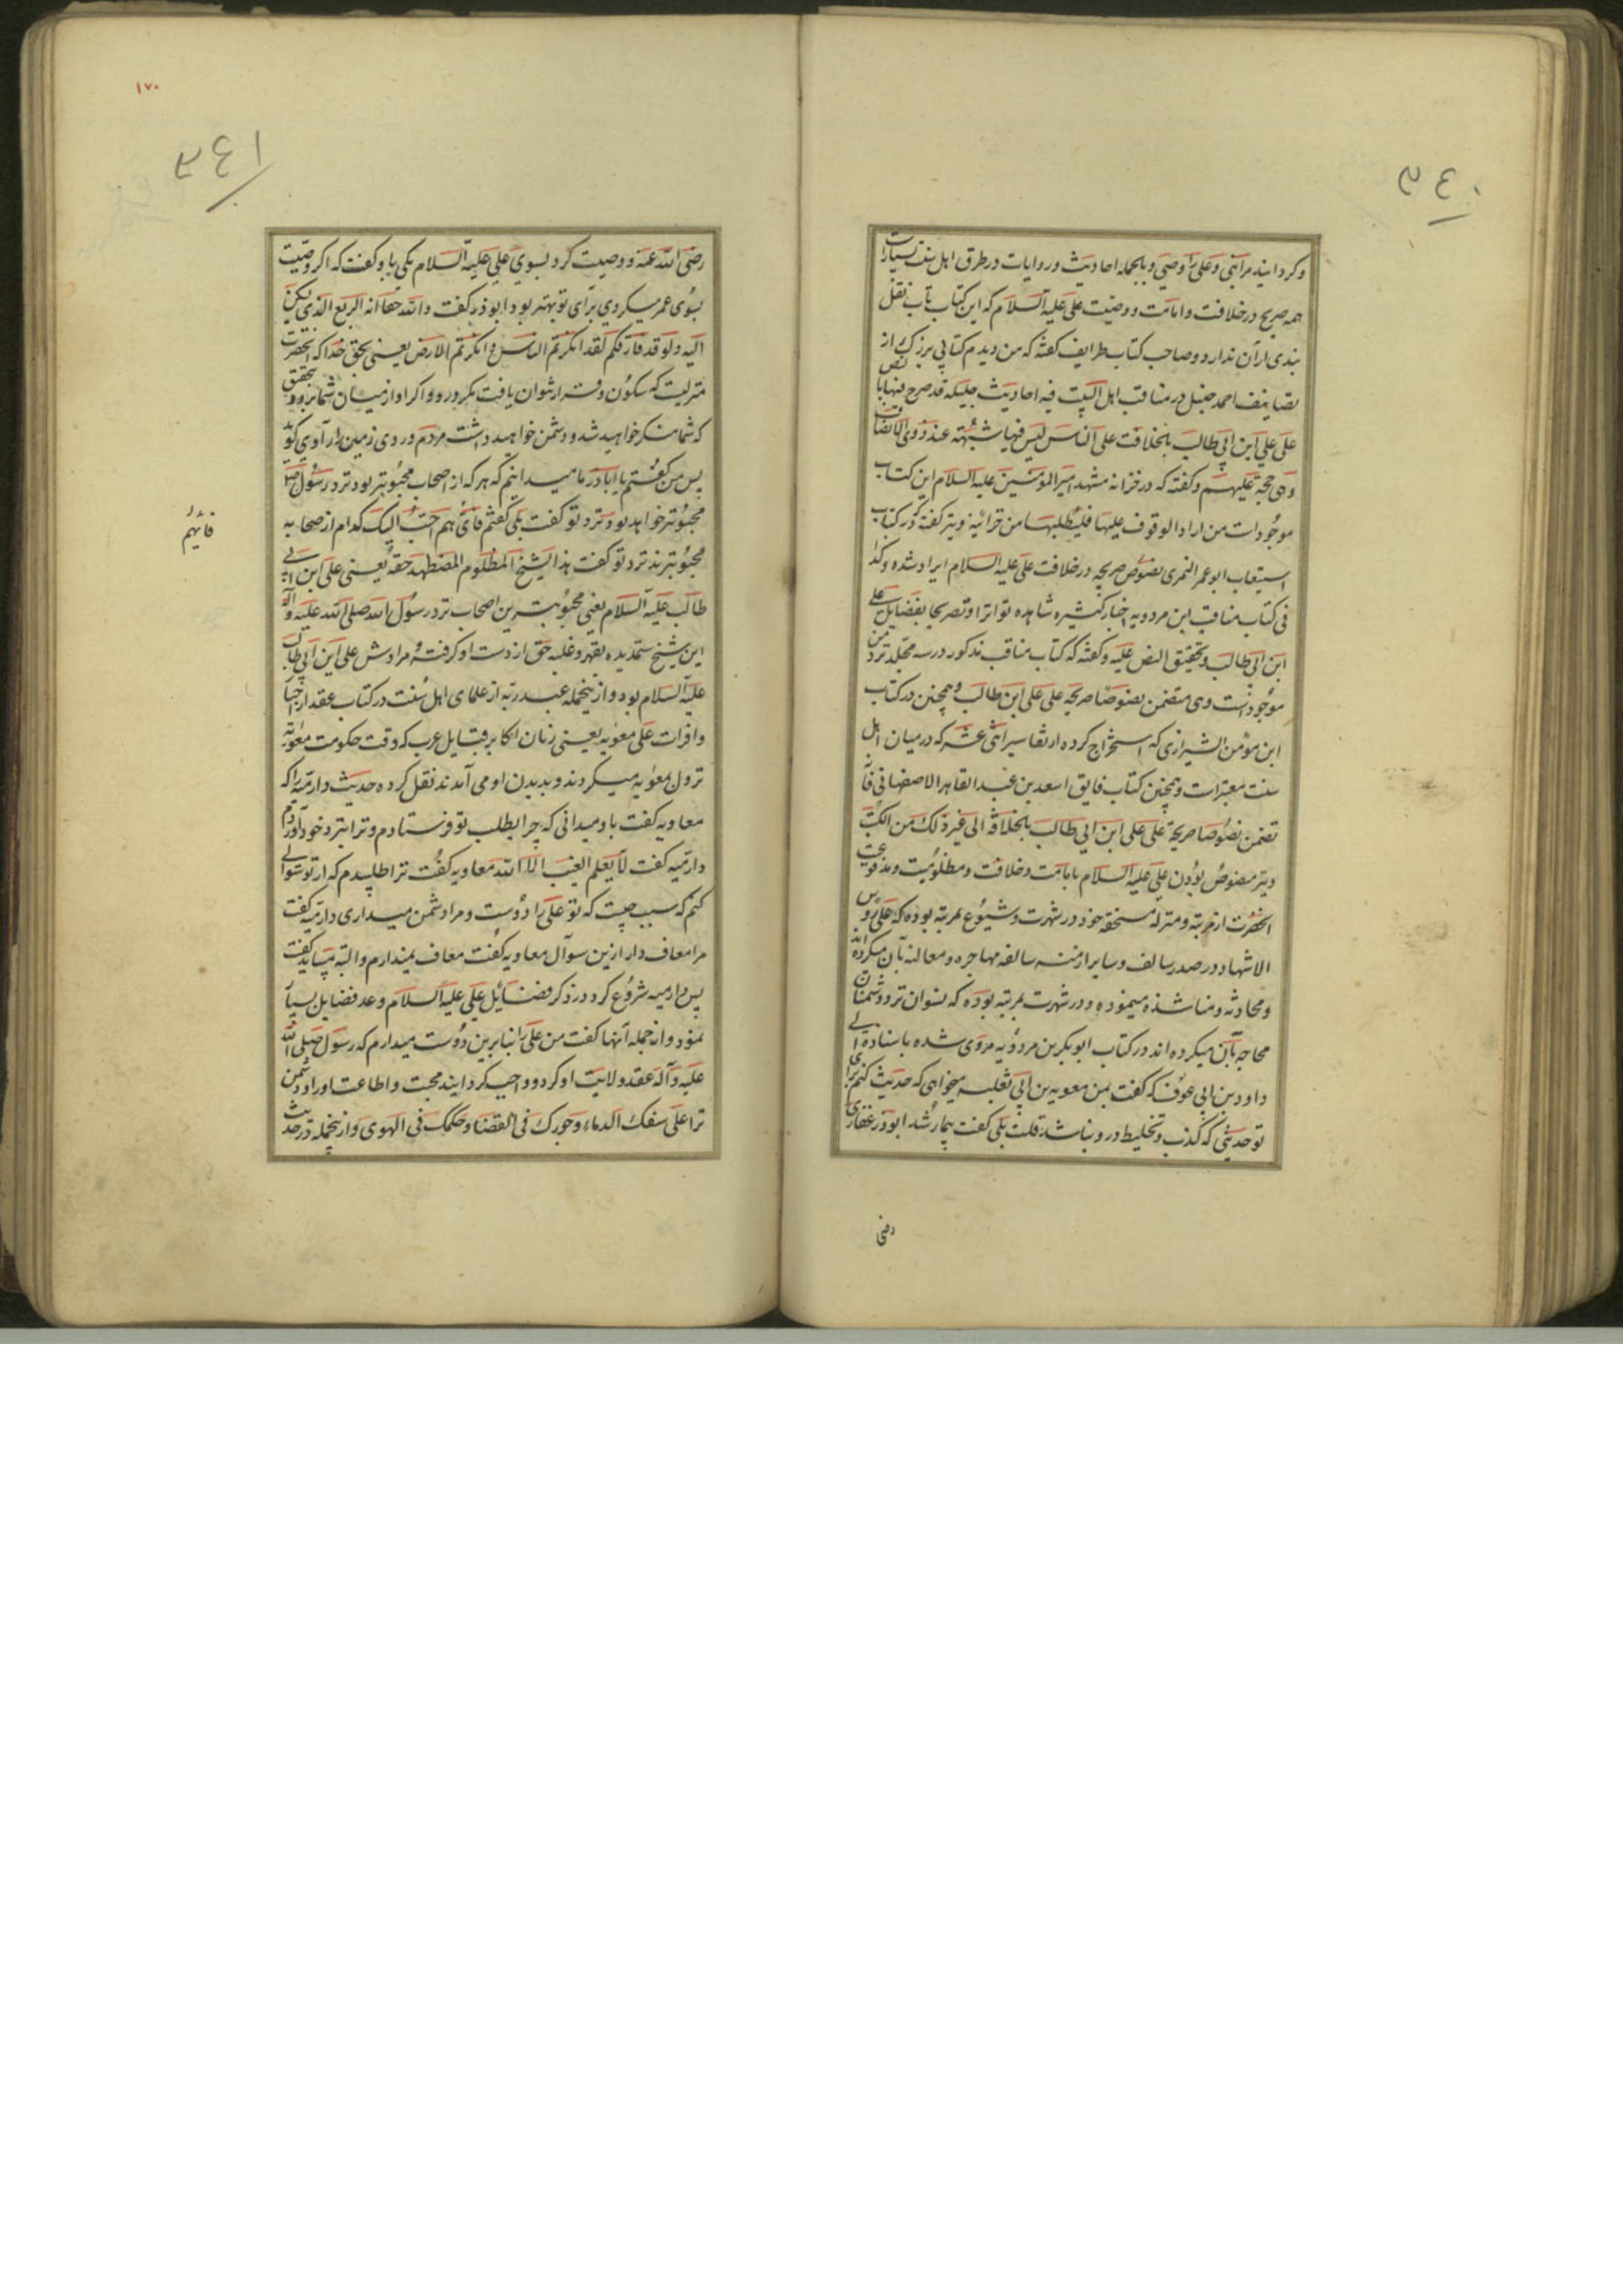 ٣٤٠
و کردانید مرا نبی و علی را وصی و بالجمله احادیث و روایات در طرق اهل سنت بسیارات
همه صریح در خلافت و امامت و وصیت علی علیه السلام که این کتاب تاب نقل
بندی از آن ندارد و صاحب کتاب طرایف کفته که من دیدم کتابی بزرک از
تصانیف احمد حنبل در مناقب اهل البیت فیه احادیث جلیله قد صرح فیها بالنص
علی علی ابن ابی طالب بالخلافت علی الناس لیس فیها شبهته عند ذوی الانصاف
و هی حجة علیهم و کفته که در خزانه مشهد امیر المؤمنین علیه السلام این کتاب
موجود است من اراد الوقوف علیها فلیطلبها من خزانیه و نیز کفته که در کتاب
استیعاب ابو عمر النمری نصوص صریحه در خلافت علی علیه السلام ایراد شده و کذا
فی کتاب مناقب ابن مردویه اخبار کثیره شاهده تواترا و تصریحا بفضایل علی
ابن ابی طالب و تحقیق النص علیه و کفته که کتاب مناقب مذکور در سه مجلد نزد من
موجود است و هی متضمن نصوصا صریحه علی علی ابن طالب و همچنین در کتاب
ابن مؤمن الشیرازی که استخراج کرده از تفاسیر اثنی عشر که در میان اهل
سنت معتبرات و همچنین کتاب فایق اسعد بن عبد القاهر الاصفهانی فانه
تضمن نصوصا صریحة علی علی ابن ابی طالب بالخلافة الی غیر ذلک من الکتب
و نیز منصوص بودن علی علیه السلام بامامت و خلافت و مظلومیت و مدفوعیت
انحضرت از مرتبه و منزله مستحقه خود در شهرت و شیوع بمرتبه بوده که علی رؤس
الاشهاد در صدر سالف و سایر ازمنه سالفه مهاجره و معالنه بآن میکرده اند
و محادثه و مناشده مینموده و در شهرت بمرتبه بوده که نسوان نزد دشمنان
محاجه بآن میکرده اند در کتاب ابو بکر بن مردویه مروی شده باسناده الی
داود بن ابی عوف که کفت بمن معویه بن ابی ثعلبه میخواهی که حدیث کنم برای
تو حدیثی که کذب و تخلیط در و نباشد قلت بلی کفت بیمار شد ابو ذر غفاری
رضی
١٧٠
٣٤١
رضی الله عنه و وصیت کرد بسوی علی علیه السلام یکی باو کفت که اکر وصیت
بسوی عمر میکردی برای تو بهتر بود ابوذر کفت و الله حقا انه الربع الذی یسکن
الیه و لو قد فارقکم لقد انکرتم الناس و انکرتم الارض یعنی بحق خدا که انحضرت
منزلیت که سکون و قرار توان یافت مکر در و و اکر او از میان شما برود بتحقیق
که شما منکر خواهید شد و دشمن خواهید داشت مردم و روی زمین را راوی کوید
پس من کفتم یا اباذر ما میدانیم که هر که از اصحاب محبوبتر بود نزد رسول ص
محبوبتر خواهد بود نزد تو کفت بلی کفتم فای هم احب الیک کدام از صحابه
محبوبترند نزد تو کفت هذا الشیخ المظلوم المضطهد حقه یعنی علی ابن ابی
طالب علیه السلام یعنی محبوبترین اصحاب نزد رسول الله صلی الله علیه و آله
این شیخ ستمدیده بقهر و غلبه حق از دست او کرفته مرادش علی ابن ابی طالب
علیه السلام بود و از انجمله عبد ربه از علمای اهل سنت در کتاب عقد از اخبار
وافرات علی معویه یعنی زنان اکابر قبایل عرب که وقت حکومت معویه
نزول بمعویه میکردند و بدیدن او می آمدند نقل کرده حدیث دارمیه را که
معاویه کفت باو میدانی که چرا بطلب تو فرستادم و ترا بنزد خود آوردم
دارمیه کفت لا یعلم الغیب الا الله معاویه کفت ترا طلبیدم که از تو سؤالی
کنم که سبب چیست که تو علی را دوست و مرا دشمن میداری دارمیه کفت
مرا معاف دار ازین سوآل معاویه کفت معاف نمیدارم و البته میباید کفت
پس دارمیه شروع کرد در ذکر فضائل علی علیه السلام و عد فضایل بسیار
نمود و از جمله آنها کفت من علی را بنا برین دوست میدارم که رسول صلی الله
علیه و آله عقد ولایت او کرد و واجب کردانید محبت و اطاعت او را و دشمن
ترا علی سفک الدماء و جورک فی القضا و حکمک فی الهوی و از انجمله در حدیث
فایهم